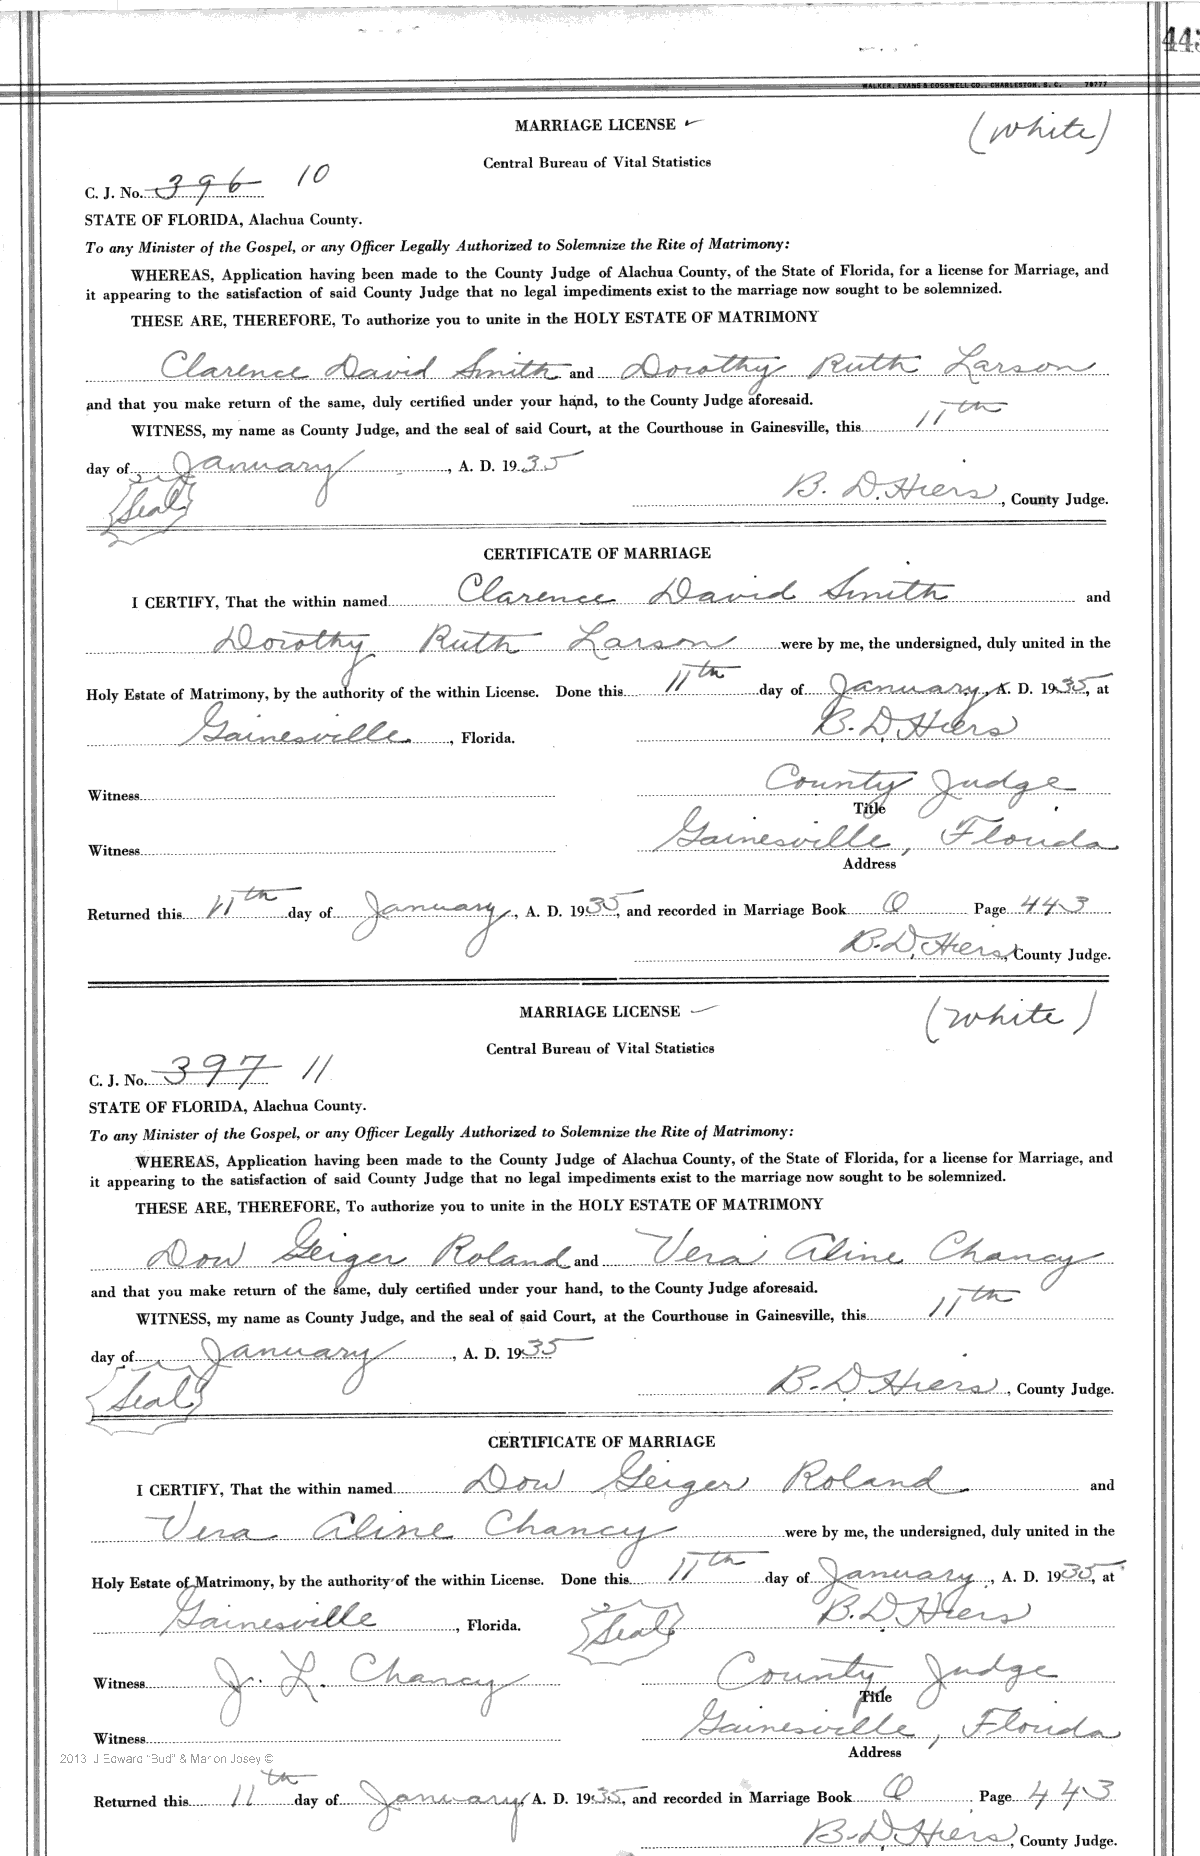 443
WALKER, EVANS & COGSWELL CO., CHARLESTON, S. C. 78777
MARRIAGE LICENSE
(White)
Central Bureau of Vital Statistics
C. J. No. 396 10
STATE OF FLORIDA, Alachua County.
To any Minister of the Gospel, or any Officer Legally Authorized to Solemnize the Rite of Matrimony:
WHEREAS, Application having been made to the County Judge of Alachua County, of the State of Florida, for a license for Marriage, and
it appearing to the satisfaction of said County Judge that no legal impediments exist to the marriage now sought to be solemnized.
THESE ARE, THEREFORE, To authorize you to unite in the HOLY ESTATE OF MATRIMONY
Clarence David Smith and Dorothy Ruth Larson
and that you make return of the same, duly certified under your hand, to the County Judge aforesaid.
WITNESS, my name as County Judge, and the seal of said Court, at the Courthouse in Gainesville, this 11th
day of January, A. D. 1935
(Seal)
B. D. Hiers, County Judge.
CERTIFICATE OF MARRIAGE
I CERTIFY, That the within named Clarence David Smith and
Dorothy Ruth Larson were by me, the undersigned, duly united in the
Holy Estate of Matrimony, by the authority of the within License. Done this 11th day of January, A. D. 1935, at
Gainesville, Florida. B. D. Hiers
Witness County Judge
Title
Witness Gainesville, Florida
Address
Returned this 11th day of January, A. D. 1935, and recorded in Marriage Book O Page 443
B. D. Hiers, County Judge.
MARRIAGE LICENSE
(White)
Central Bureau of Vital Statistics
C. J. No. 397 11
STATE OF FLORIDA, Alachua County.
To any Minister of the Gospel, or any Officer Legally Authorized to Solemnize the Rite of Matrimony:
WHEREAS, Application having been made to the County Judge of Alachua County, of the State of Florida, for a license for Marriage, and
it appearing to the satisfaction of said County Judge that no legal impediments exist to the marriage now sought to be solemnized.
THESE ARE, THEREFORE, To authorize you to unite in the HOLY ESTATE OF MATRIMONY
Dow Geiger Roland and Vera Aline Chancy
and that you make return of the same, duly certified under your hand, to the County Judge aforesaid.
WITNESS, my name as County Judge, and the seal of said Court, at the Courthouse in Gainesville, this 11th
day of January, A. D. 1935
(Seal)
B. D. Hiers, County Judge.
CERTIFICATE OF MARRIAGE
I CERTIFY, That the within named Dow Geiger Roland and
Vera Aline Chancy were by me, the undersigned, duly united in the
Holy Estate of Matrimony, by the authority of the within License. Done this 11th day of January, A. D. 1935, at
Gainesville, Florida. (Seal) B. D. Hiers
Witness J. L. Chancy County Judge
Title
Witness Gainesville, Florida
Address
2013 J Edward "Bud" & Marion Josey ©
Returned this 11th day of January, A. D. 1935, and recorded in Marriage Book O Page 443
B. D. Hiers, County Judge.